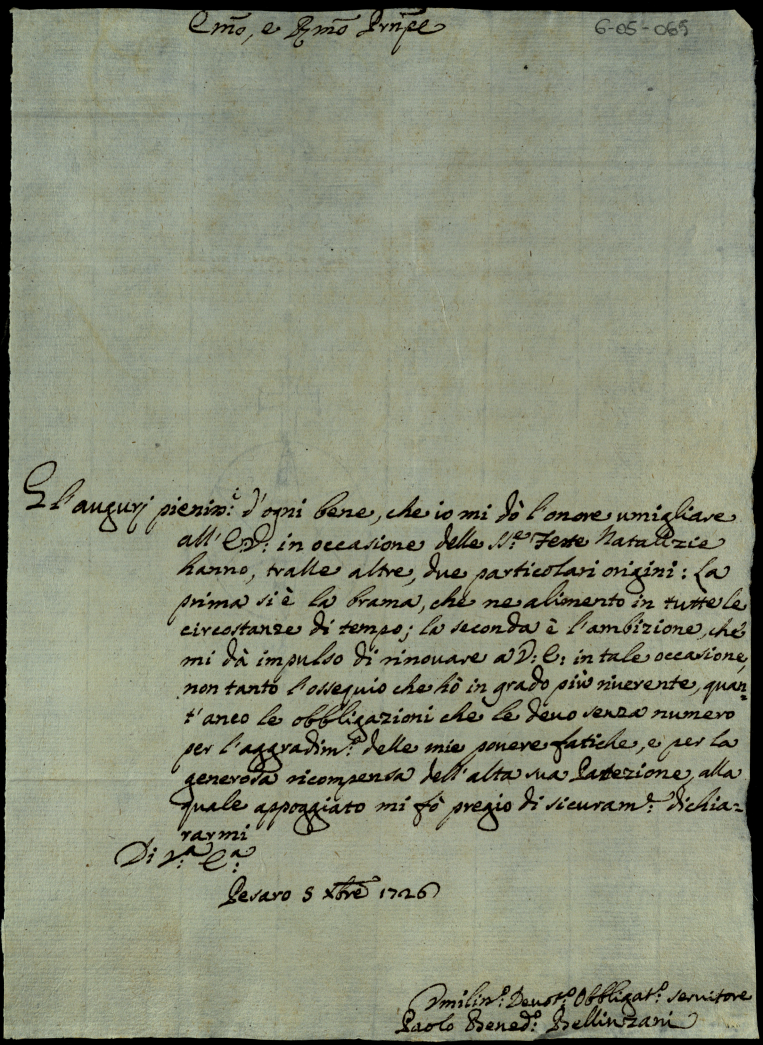 Em̃o, e Rm̃o Prñpe
6-05-065
Gl'augurj pieniss:i d'ogni bene, che io mi dò l'onore umigliare
all'E V: in occasione delle SS.e Feste Natalizie
hanno, tralle altre, due particolari origini: La
prima si è la brama, che ne alimento in tutte le
circostanze di tempo; la seconda è l'ambizione, che
mi dà impulso di rinovare a V: E: in tale occasione,
non tanto l'ossequio che hò in grado più riverente, quan-
t'anco le obbligazioni che le devo senza numero
per l'aggradim.o delle mie povere fatiche, e per la
generosa ricompensa dell'alta sua Protezione, alla
quale appoggiato mi fò pregio di sicuram.e dichia-
rarmi
Di V.a E.a:
Pesaro 5 Xbre 1726
Vmiliss.o Devot.o Obbligat.o Servitore
Paolo Bened.o Bellinzani